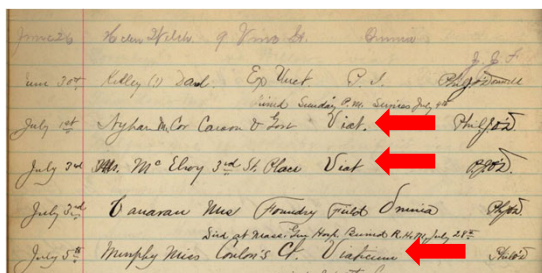 June 26 Helen Welch 9 Vine St. Omnia
J. C. F.
June 30th Kelley (?) Dad. Ex Unct P. S. Phil J O'Donnell
Sunday P.M. Services July 4th
July 1st Nyhan McCor Carson & Gost Viat. Phil J O'D
July 3rd Mrs. McElroy 3rd St. Place Viat P J O'D.
July 3rd Canavan Mrs Foundry Field Omnia Ph J O'D.
Died at Mass. Gen Hosp. Buried R. H. M. July 28th
July 5th Murphy Miss Conlon's Ct. Viaticum Phil O'D